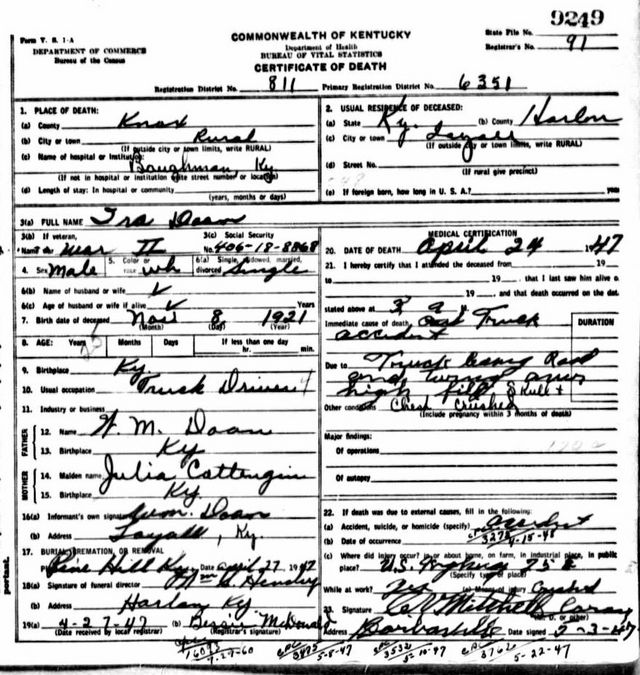 9249
Form V. S. 1-A
DEPARTMENT OF COMMERCE
Bureau of the Census
COMMONWEALTH OF KENTUCKY
Department of Health
BUREAU OF VITAL STATISTICS
CERTIFICATE OF DEATH
State File No.
Registrar's No. 91
Registration District No. 811 Primary Registration District No. 6351
1. PLACE OF DEATH:
(a) County Knox
(b) City or town Rural
(If outside city or town limits, write RURAL)
(c) Name of hospital or institution: Baughman, Ky
(If not in hospital or institution write street number or location)
(d) Length of stay: In hospital or community
(years, months or days)
2. USUAL RESIDENCE OF DECEASED:
(a) State Ky. (b) County Harlan
(c) City or town Loyall
(If outside city or town limits, write RURAL)
(d) Street No.
(If rural give precinct)
(e) If foreign born, how long in U. S. A.?
3(a) FULL NAME Ira Doan
3(b) If veteran,
Name of war II
3(c) Social Security
No. 406-18-8868
4. Sex Male 5. Color or race wh 6(a) Single, widowed, married, divorced Single
6(b) Name of husband or wife
6(c) Age of husband or wife if alive Years
7. Birth date of deceased Nov 8 1921
(Month) (Day) (Year)
8. AGE: Years 25 Months Days If less than one day
hr. min.
9. Birthplace Ky
10. Usual occupation Truck Driver
11. Industry or business
FATHER
12. Name W. M. Doan
13. Birthplace Ky
MOTHER
14. Maiden name Julia Cottengim
15. Birthplace Ky.
16(a) Informant's own signature Wm. Doan
(b) Address Loyall, Ky
17. BURIAL, CREMATION, OR REMOVAL
Pine Hill Ky Date April 27 1947
18(a) Signature of funeral director
(b) Address Harlan Ky
19(a) 4-27-47 (b) Bessie McDonald
(Date received by local registrar) (Registrar's signature)
MEDICAL CERTIFICATION
20. DATE OF DEATH April 24 1947
21. I hereby certify that I attended the deceased from 19
to 19 that I last saw him alive o
19 and that death occurred on the dat
stated above at 3
Immediate cause of death Truck
accident
DURATION
Due to Truck Road
and turned over
high fill Skull +
Other conditions Chest Crushed
(Include pregnancy within 3 months of death)
Major findings:
Of operations
Of autopsy
22. If death was due to external causes, fill in the following:
(a) Accident, suicide, or homicide (specify) accident
(b) Date of occurrence 3278 4-15-48
(c) Where did injury occur? in or about home, on farm, in industrial place, in public
place? U.S. 25 E
(Specify type of place)
While at work? yes Means of injury Crushed
23. Signature Mitchell Coroner
(M. D. or other)
Address Barbourville Date signed 5-3-47
16093
7-27-60
3475
5-8-47
3532
5-10-47
3762
5-22-47
portant.